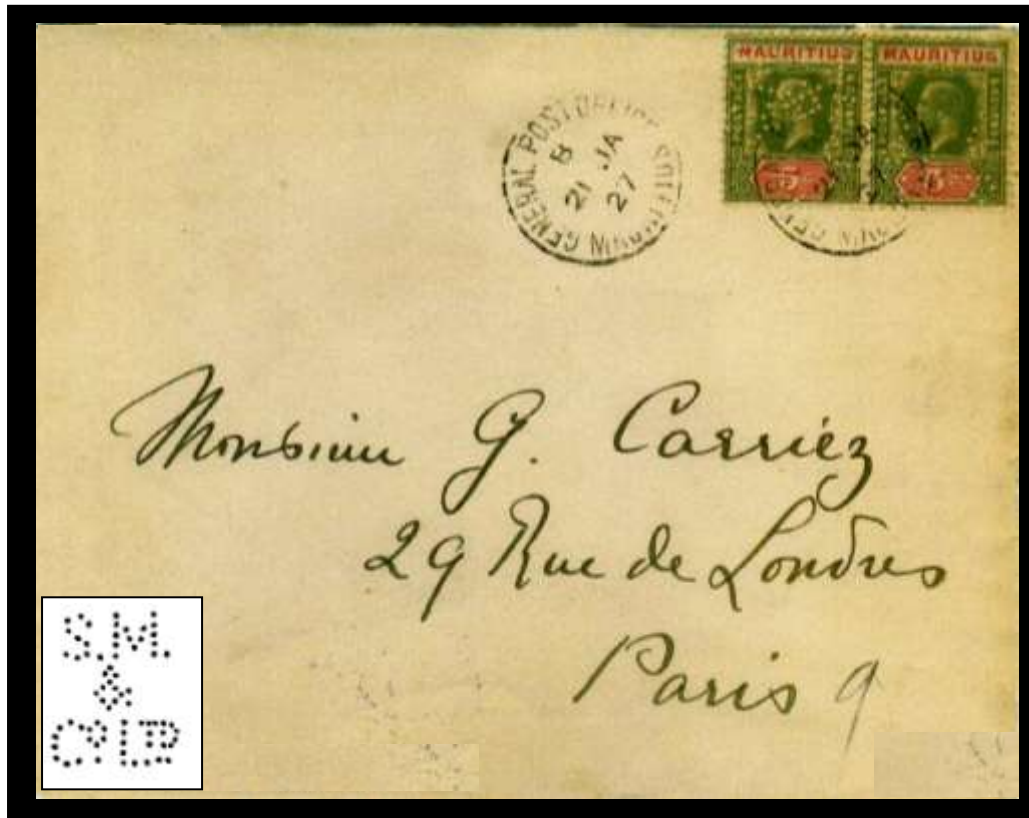 MAURITIUS MAURITIUS
GENERAL POST OFFICE MAURITIUS
B
21 JA
27
5
Monsieur G. Carriez
29 Rue de Londres
Paris 9
S.M.
&
Co LTD